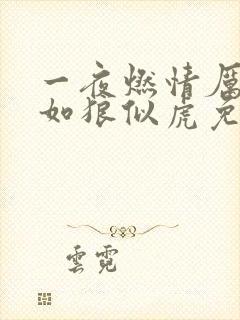 一夜燃情厲
如狼似虎免
雲霓